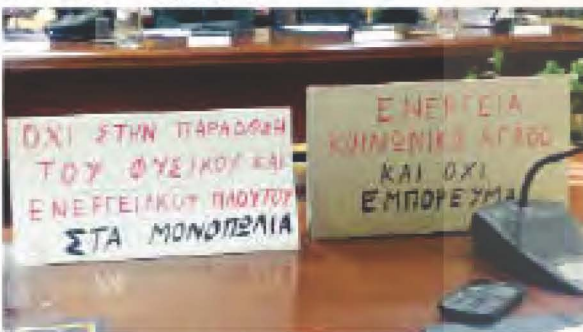 ΟΧΙ ΣΤΗΝ ΠΑΡΑΔΟΣΗ
ΤΟΥ ΦΥΣΙΚΟΥ ΚΑΙ
ΕΝΕΡΓΕΙΑΚΟΥ ΠΛΟΥΤΟΥ
ΣΤΑ ΜΟΝΟΠΩΛΙΑ
ΕΝΕΡΓΕΙΑ
ΚΟΙΝΩΝΙΚΟ ΑΓΑΘΟ
ΚΑΙ ΟΧΙ
ΕΜΠΟΡΕΥΜΑ